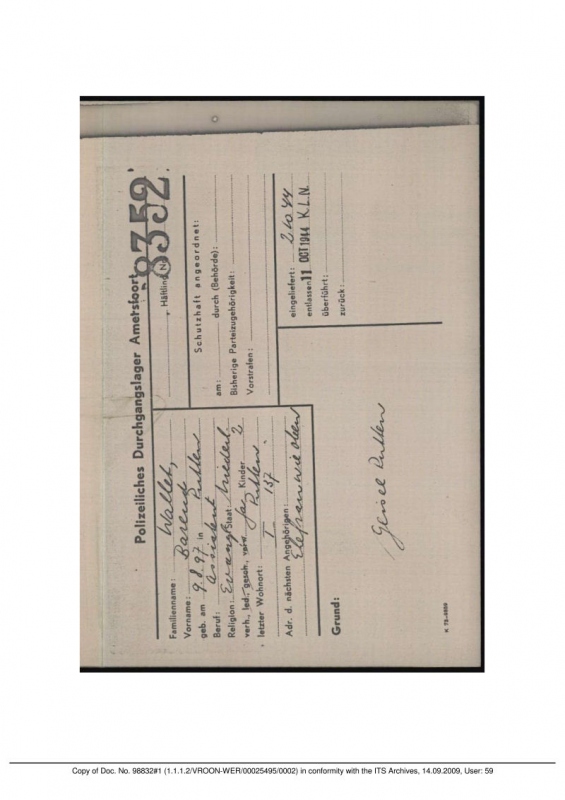 Polizeiliches Durchgangslager Amersfoort
8352
Häftling Nr.
Familienname: Wallet,
Vorname: Barend
geb. am 9.8.97 in Putten
Beruf: Assistent
Religion: Evang. Staat: Niederl.
verh., led., gesch., verw. Ja Kinder 2
letzter Wohnort: Putten
I 157
Adr. d. nächsten Angehörigen:
Ehefrau wie oben
Schutzhaft angeordnet:
am: durch (Behörde):
Bisherige Parteizugehörigkeit:
Vorstrafen:
eingeliefert: 2 10 44
entlassen 11 OKT 1944 K.L.N.
überführt:
zurück:
Grund:
Geisel Putten
Copy of Doc. No. 98832#1 (1.1.1.2/VROON-WER/00025495/0002) in conformity with the ITS Archives, 14.09.2009, User: 59